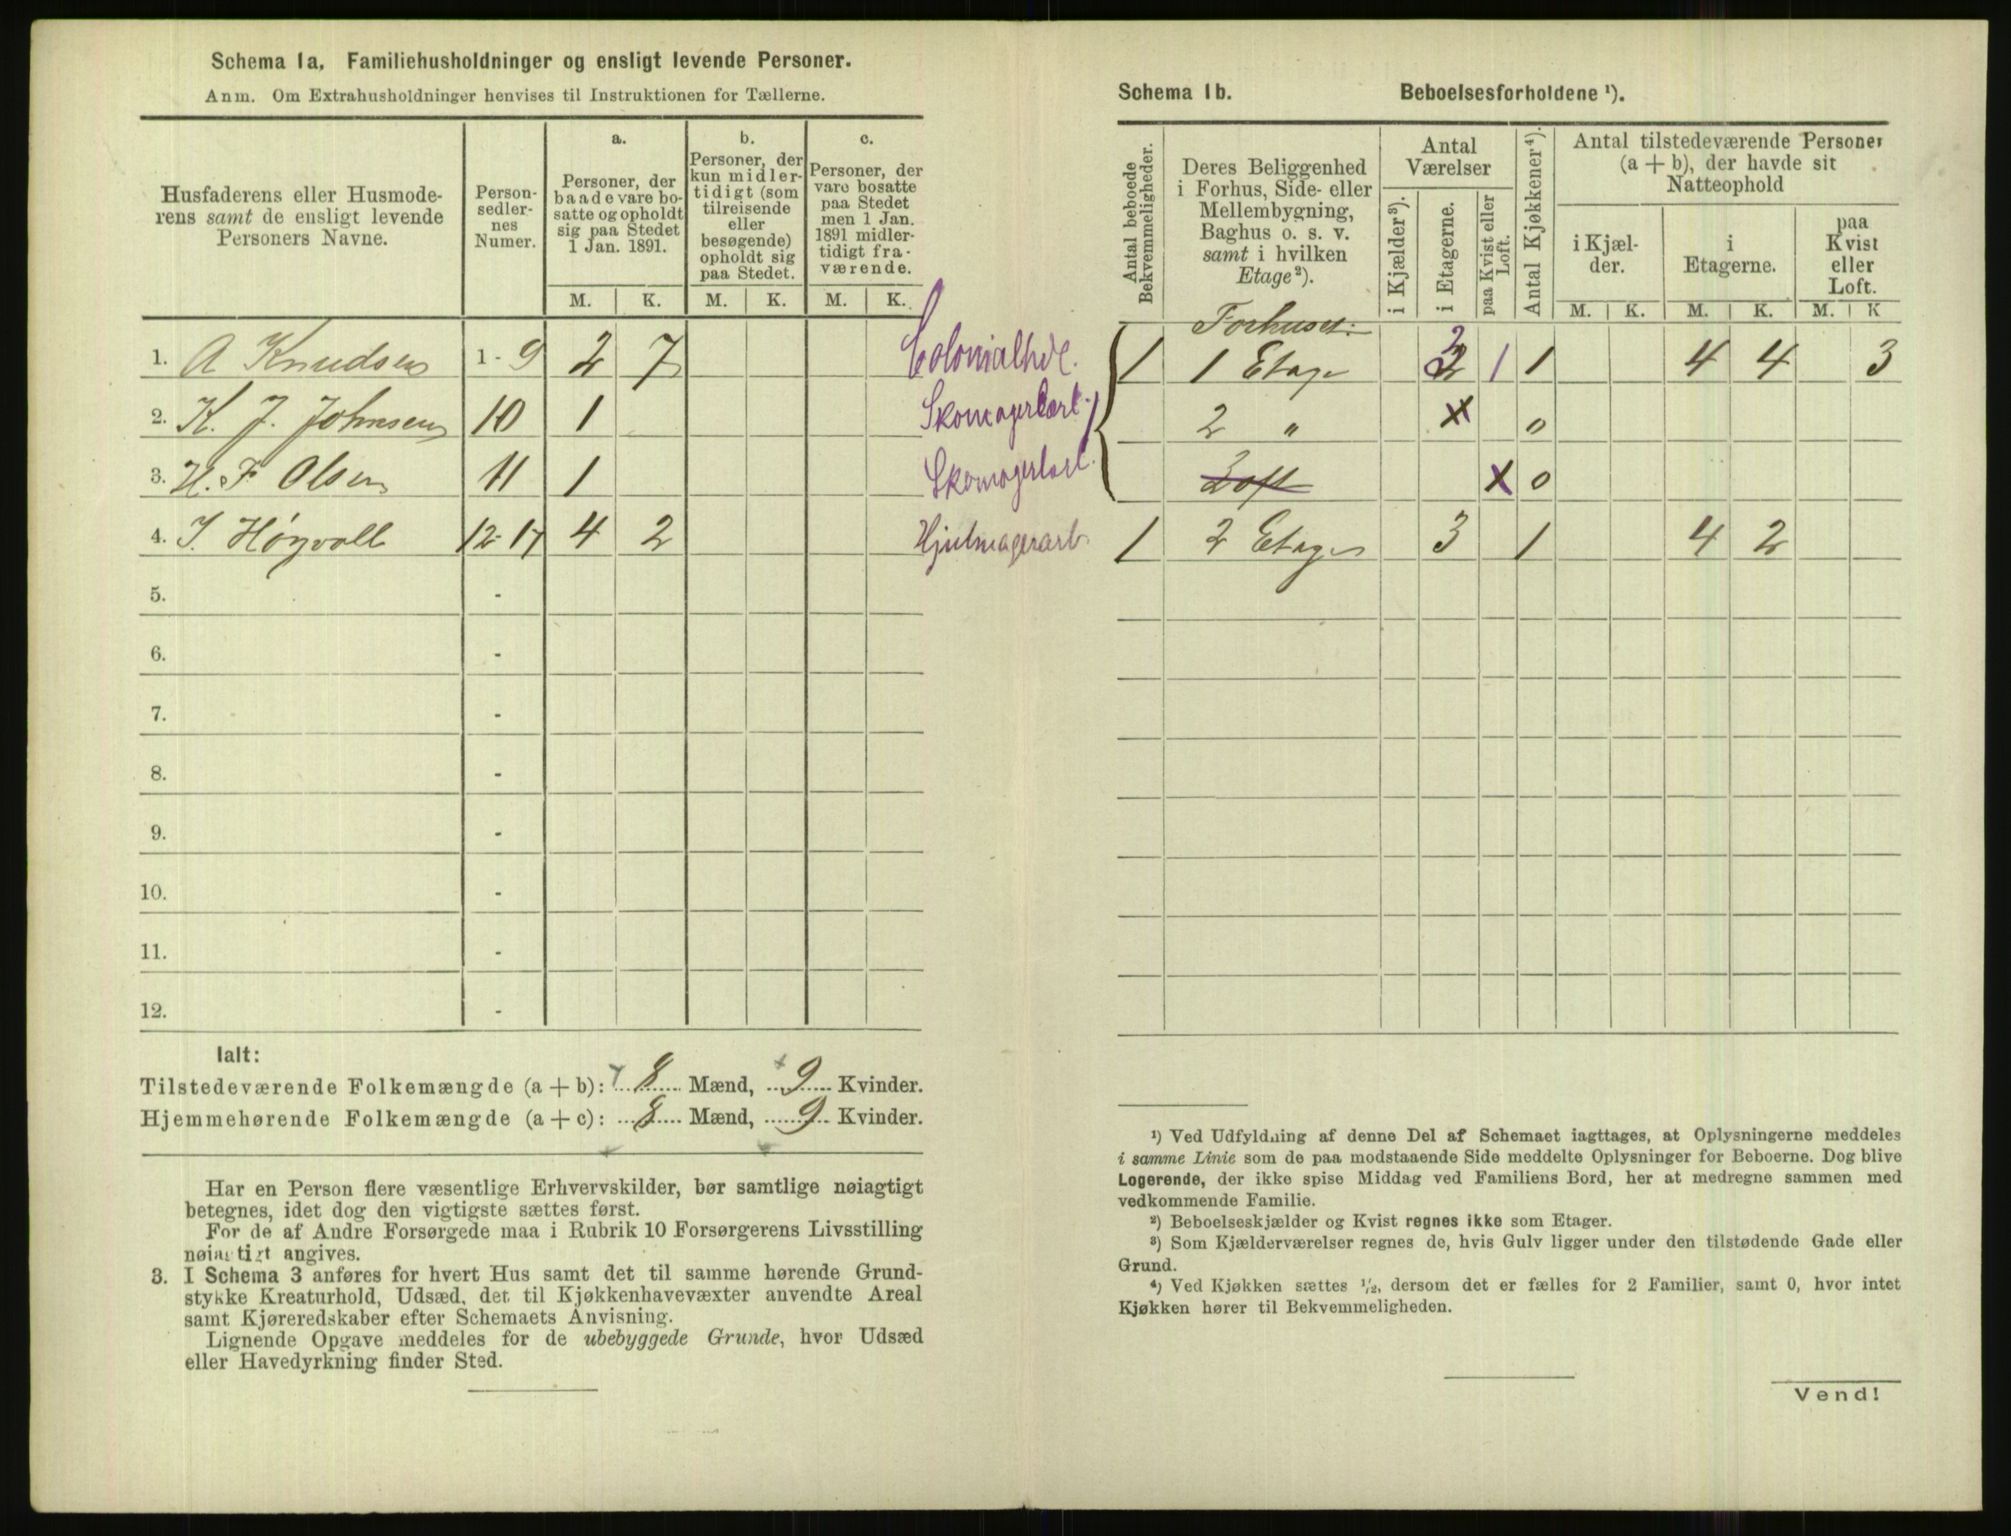 Schema 1a. Familiehusholdninger og ensligt levende Personer.
Anm. Om Extrahusholdninger henvises til Instruktionen for Tællerne.
Husfaderens eller Husmode-
rens samt de ensligt levende
Personers Navne.
Person-
sedler-
nes
Numer.
a.
Personer, der
baade vare bo-
satte og opholdt
sig paa Stedet
1 Jan. 1891.
b.
Personer, der
kun midler-
tidigt (som
tilreisende
eller
besøgende)
opholdt sig
paa Stedet.
c.
Personer, der
vare bosatte
paa Stedet
men 1 Jan.
1891 midler-
tidigt fra-
værende.
M. K. M. K. M. K.
1. A Knudsen 1-9 2 7 Colonialhdl.
2. K. J. Johnsen 10 1 Skomagerarb.
3. H. F Olsen 11 1 Skomagerarb.
4. J. Høyvoll 12-17 4 2 Hjulmagerarb.
5. -
6. -
7. -
8. -
9. -
10. -
11. -
12. -
Ialt:
Tilstedeværende Folkemængde (a + b): 8 Mænd, 9 Kvinder.
Hjemmehørende Folkemængde (a + c): 8 Mænd, 9 Kvinder.
Har en Person flere væsentlige Erhvervskilder, bør samtlige nøiagtigt
betegnes, idet dog den vigtigste sættes først.
For de af Andre Forsørgede maa i Rubrik 10 Forsørgerens Livsstilling
nøiagtigt angives.
3. I Schema 3 anføres for hvert Hus samt det til samme hørende Grund-
stykke Kreaturhold, Udsæd, det til Kjøkkenhavevæxter anvendte Areal
samt Kjøreredskaber efter Schemaets Anvisning.
Lignende Opgave meddeles for de ubebyggede Grunde, hvor Udsæd
eller Havedyrkning finder Sted.
Schema 1b. Beboelsesforholdene ¹).
Antal beboede
Bekvemmeligheder.
Deres Beliggenhed
i Forhus, Side- eller
Mellembygning,
Baghus o. s. v.
samt i hvilken
Etage²).
Antal
Værelser
i Kjælder³).
i Etagerne.
paa Kvist eller
Loft.
Antal Kjøkkener⁴).
Antal tilstedeværende Personer
(a + b), der havde sit
Natteophold
i Kjæl-
der.
i
Etagerne.
paa
Kvist
eller
Loft.
M. K. M. K. M. K
Forhuset:
1 1 Etage 2 1 1 4 4 3
2 " x 0
Loft x 0
1 2 Etage 3 1 4 2
¹) Ved Udfyldning af denne Del af Schemaet iagttages, at Oplysningerne meddeles
i samme Linie som de paa modstaaende Side meddelte Oplysninger for Beboerne. Dog blive
Logerende, der ikke spise Middag ved Familiens Bord, her at medregne sammen med
vedkommende Familie.
²) Beboelseskjælder og Kvist regnes ikke som Etager.
³) Som Kjælderværelser regnes de, hvis Gulv ligger under den tilstødende Gade eller
Grund.
⁴) Ved Kjøkken sættes ½, dersom det er fælles for 2 Familier, samt 0, hvor intet
Kjøkken hører til Bekvemmeligheden.
Vend!